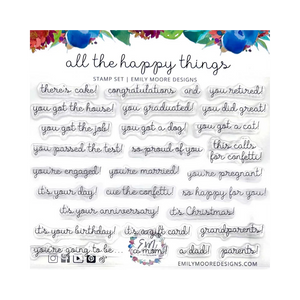 all the happy things
STAMP SET | EMILY MOORE DESIGNS
there's cake! congratulations and you retired!
you got the house! you graduated! you did great!
you got the job! you got a dog! you got a cat!
you passed the test! so proud of you this calls
for confetti!
you're engaged! you're married! you're pregnant!
it's your day! cue the confetti! so happy for you
it's your anniversary! it's Christmas!
it's your birthday! it's a gift card! grandparents!
you're going to be a mom! a dad! parents!
EMILYMOOREDESIGNS.COM